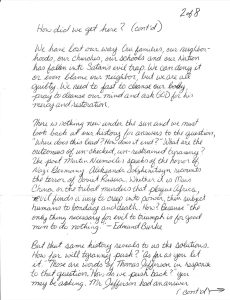 2 of 8
How did we get here? (cont'd)
We have lost our way. Our families, our neighbor-
hoods, our Churches, our schools and our Nation
has fallen into Satan's evil trap. We can deny it
or even blame our neighbor, but we are all
guilty. We need to fast to cleanse our body,
pray to cleanse our mind and ask GOD for his
mercy and restoration.
There is nothing new under the sun and we must
look back at our history for answers to the question,
"Where does this lead? How does it end?" What are the
outcomes of un-checked, un-restrained tyranny?
The poet Martin Niemoller speaks of the horror of
Nazi Germany. Aleksandr Solzhenitsyn recounts
the terror of Soviet Russia. Whether it is Mao
China or the tribal murders that plague Africa,
evil finds a way to creep into power, then subject
humans to bondage and death. How? Because "the
only thing necessary for evil to triumph is for good
men to do nothing." - Edmund Burke
But that same history reveals to us the solutions.
How far will tyranny push? "As far as you let
it." Those are words of Thomas Jefferson in response
to that question. How do we push back? you
may be asking. Mr. Jefferson had an answer
(cont'd) →